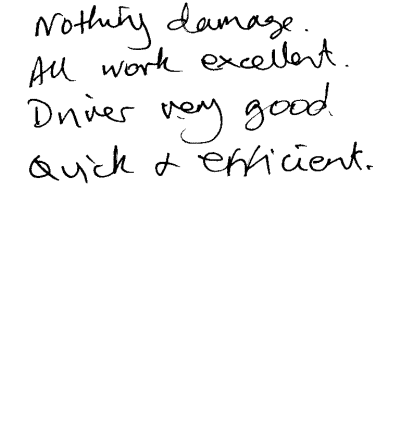 Nothing damage.
All work excellent.
Driver very good.
Quick & efficient.